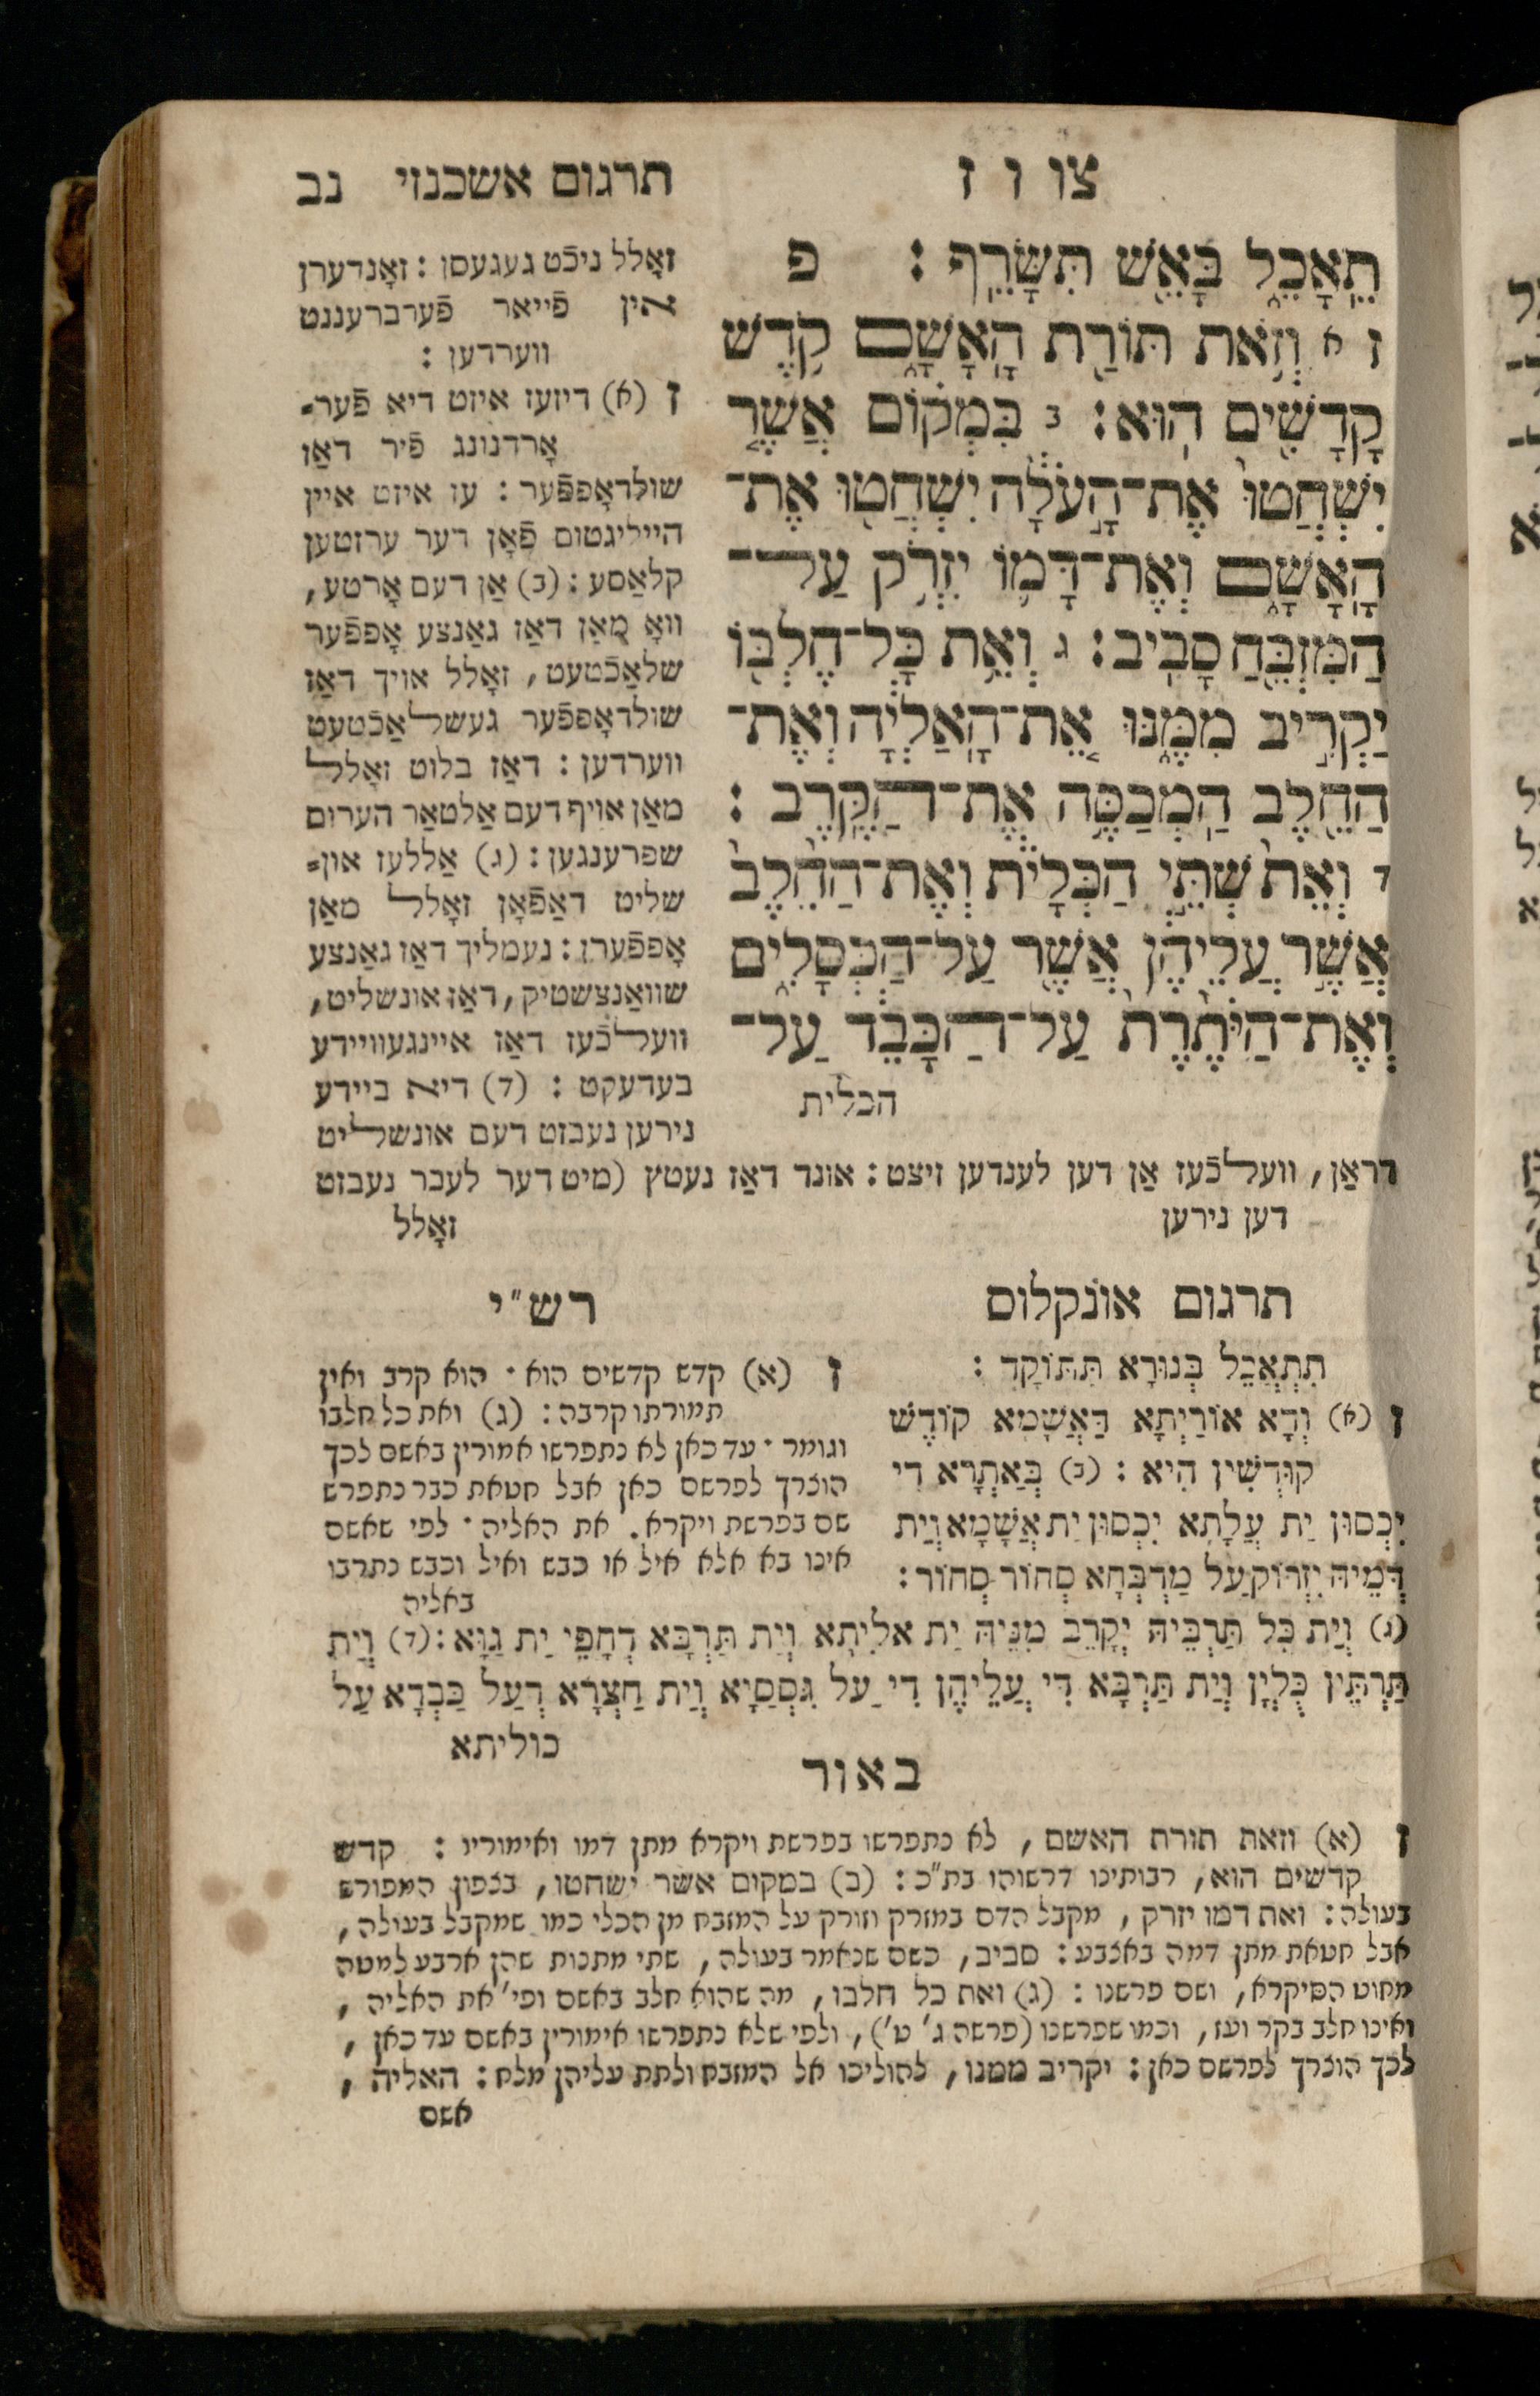 צו ו ז
תרגום אשכנזי נב
תֵֽאָכֵ֑ל בָּאֵ֖שׁ תִּשָּׂרֵֽף : פ
ז א וְזֹ֥את תּוֹרַ֖ת הָֽאָשָׁ֑ם קֹ֥דֶשׁ
קָֽדָשִׁ֖ים הֽוּא : ב בִּמְק֗וֹם אֲשֶׁ֤ר
יִשְׁחֲטוּ֙ אֶת־הָ֣עֹלָ֔ה יִשְׁחֲט֖וּ אֶת־
הָֽאָשָׁ֑ם וְאֶת־דָּמ֛וֹ יִזְרֹ֥ק עַל־
הַמִּזְבֵּ֖חַ סָבִֽיב : ג וְאֵ֥ת כָּל־חֶלְבּ֖וֹ
יַקְרִ֣יב מִמֶּ֑נּוּ אֵ֚ת־הָֽאַלְיָ֔ה וְאֶת־
הַחֵ֖לֶב הַֽמְכַסֶּ֥ה אֶת־הַקֶּֽרֶב :
ד וְאֵת֙ שְׁתֵּ֣י הַכְּלָיֹ֔ת וְאֶת־הַחֵ֙לֶב֙
אֲשֶׁ֣ר עֲלֵיהֶ֔ן אֲשֶׁ֖ר עַל־הַכְּסָלִ֑ים
וְאֶת־הַיֹּתֶ֙רֶת֙ עַל־הַכָּבֵ֔ד עַל־
הכלית
זאָלל ניכֿט געגעסן : זאָנדערן
אין פֿייאר פֿערברעננט
ווערדען :
ז (א) דיזעז איזט דיא פֿער־
אָרדנונג פֿיר דאַז
שולדאָפפֿער : עז איזט איין
הייליגטום פֿאָן דער ערזטען
קלאַסע : (ב) אַן דעם אָרטע ,
וואָ מאַן דאַז גאַנצע אָפפֿער
שלאַכֿטעט , זאָלל אויך דאַז
שולדאָפפֿער געשלאַכֿטעט
ווערדען : דאַז בלוט זאָלל
מאַן אויף דעם אַלטאַר הערום
שפרענגען : (ג) אַללעז און־
שליט דאַפֿאָן זאָלל מאַן
אָפפֿערן : נעמליך דאַז גאַנצע
שוואַנצשטיק , דאַז אונשליט ,
וועלכֿעז דאַז איינגעוויידע
בעדעקט : (ד) דיא ביידע
נירען נעבזט דעם אונשליט
דראַן , וועלכֿעז אַן דען לענדען זיצט : אונד דאַז נעטץ (מיט דער לעבר נעבזט
דען נירען
זאָלל
תרגום אונקלוס
תִתְאֲכֵל בְּנוּרָא תִּתּוֹקָד :
ז (א) וְדָא אוֹרַיְתָא דַּאֲשָׁמָא קוֹדֶשׁ
קוּדְשִׁין הִיא : (ב) בְּאַתְרָא דִי
יִכְסוּן יַת עֲלָתָא יִכְסוּן יַת אֲשָׁמָא וְיַת
דְּמֵיהּ יִזְרוֹק עַל מַדְבְּחָא סְחוֹר סְחוֹר :
(ג) וְיַת כָּל תַּרְבֵּיהּ יְקָרֵב מִנֵּיהּ יַת אליתא וְיַת תַּרְבָּא דְחָפֵי יַת גַוָּא : (ד) וְיַת
תַּרְתֵּין כֻּלְיָן וְיַת תַּרְבָּא דִּי עֲלֵיהֶן דִי עַל גִּסְסַיָא וְיַת חַצְרָא דְעַל כַּבְדָא עַל
כוליתא
רש"י
ז (א) קדש קדשים הוא · הוא קרב ואין
תמורתו קרבה : (ג) ואת כל חלבו
וגומר · עד כאן לא נתפרשו אמורין באשם לכך
הוצרך לפרשם כאן אבל חטאת כבר נתפרש
שם בפרשת ויקרא . את האליה · לפי שאשם
אינו בא אלא איל או כבש ואיל וכבש נתרבו
באליה
באור
ז (א) וזאת תורת האשם , לא נתפרשו בפרשת ויקרא מתן דמו ואימוריו : קדש
קדשים הוא , רבותינו דרשוהו בת"כ : (ב) במקום אשר ישחטו , בצפון המפורש
בעולה : ואת דמו יזרק , מקבל הדם במזרק וזורק על המזבח מן הכלי כמו שמקבל בעולה ,
אבל חטאת מתן דמה באצבע : סביב , כשם שנאמר בעולה , שתי מתנות שהן ארבע למטה
מחוט הסיקרא , ושם פרשנו : (ג) ואת כל חלבו , מה שהוא חלב באשם ופי' את האליה ,
ואינו חלב בקר ועז , וכמו שפרשנו (פרשה ג' ט') , ולפי שלא נתפרשו אימורין באשם עד כאן ,
לכך הוצרך לפרשם כאן : יקריב ממנו , להוליכו אל המזבח ולתת עליהן מלח : האליה ,
אשם